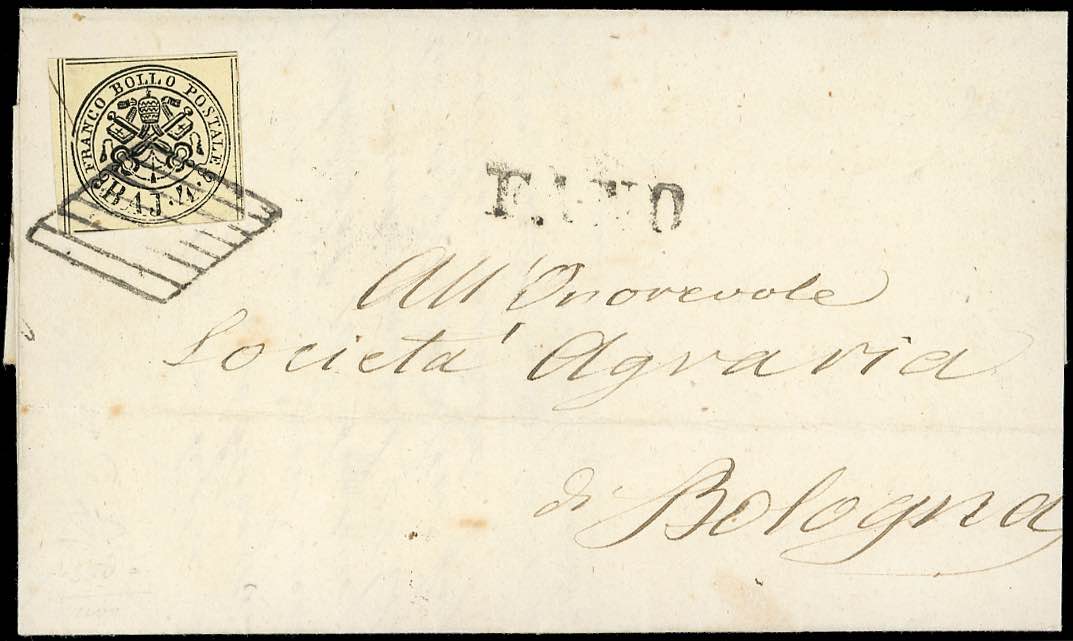 FRANCO BOLLO POSTALE
BAJ. 4.
FANO
All' Onorevole
Società Agraria
di Bologna